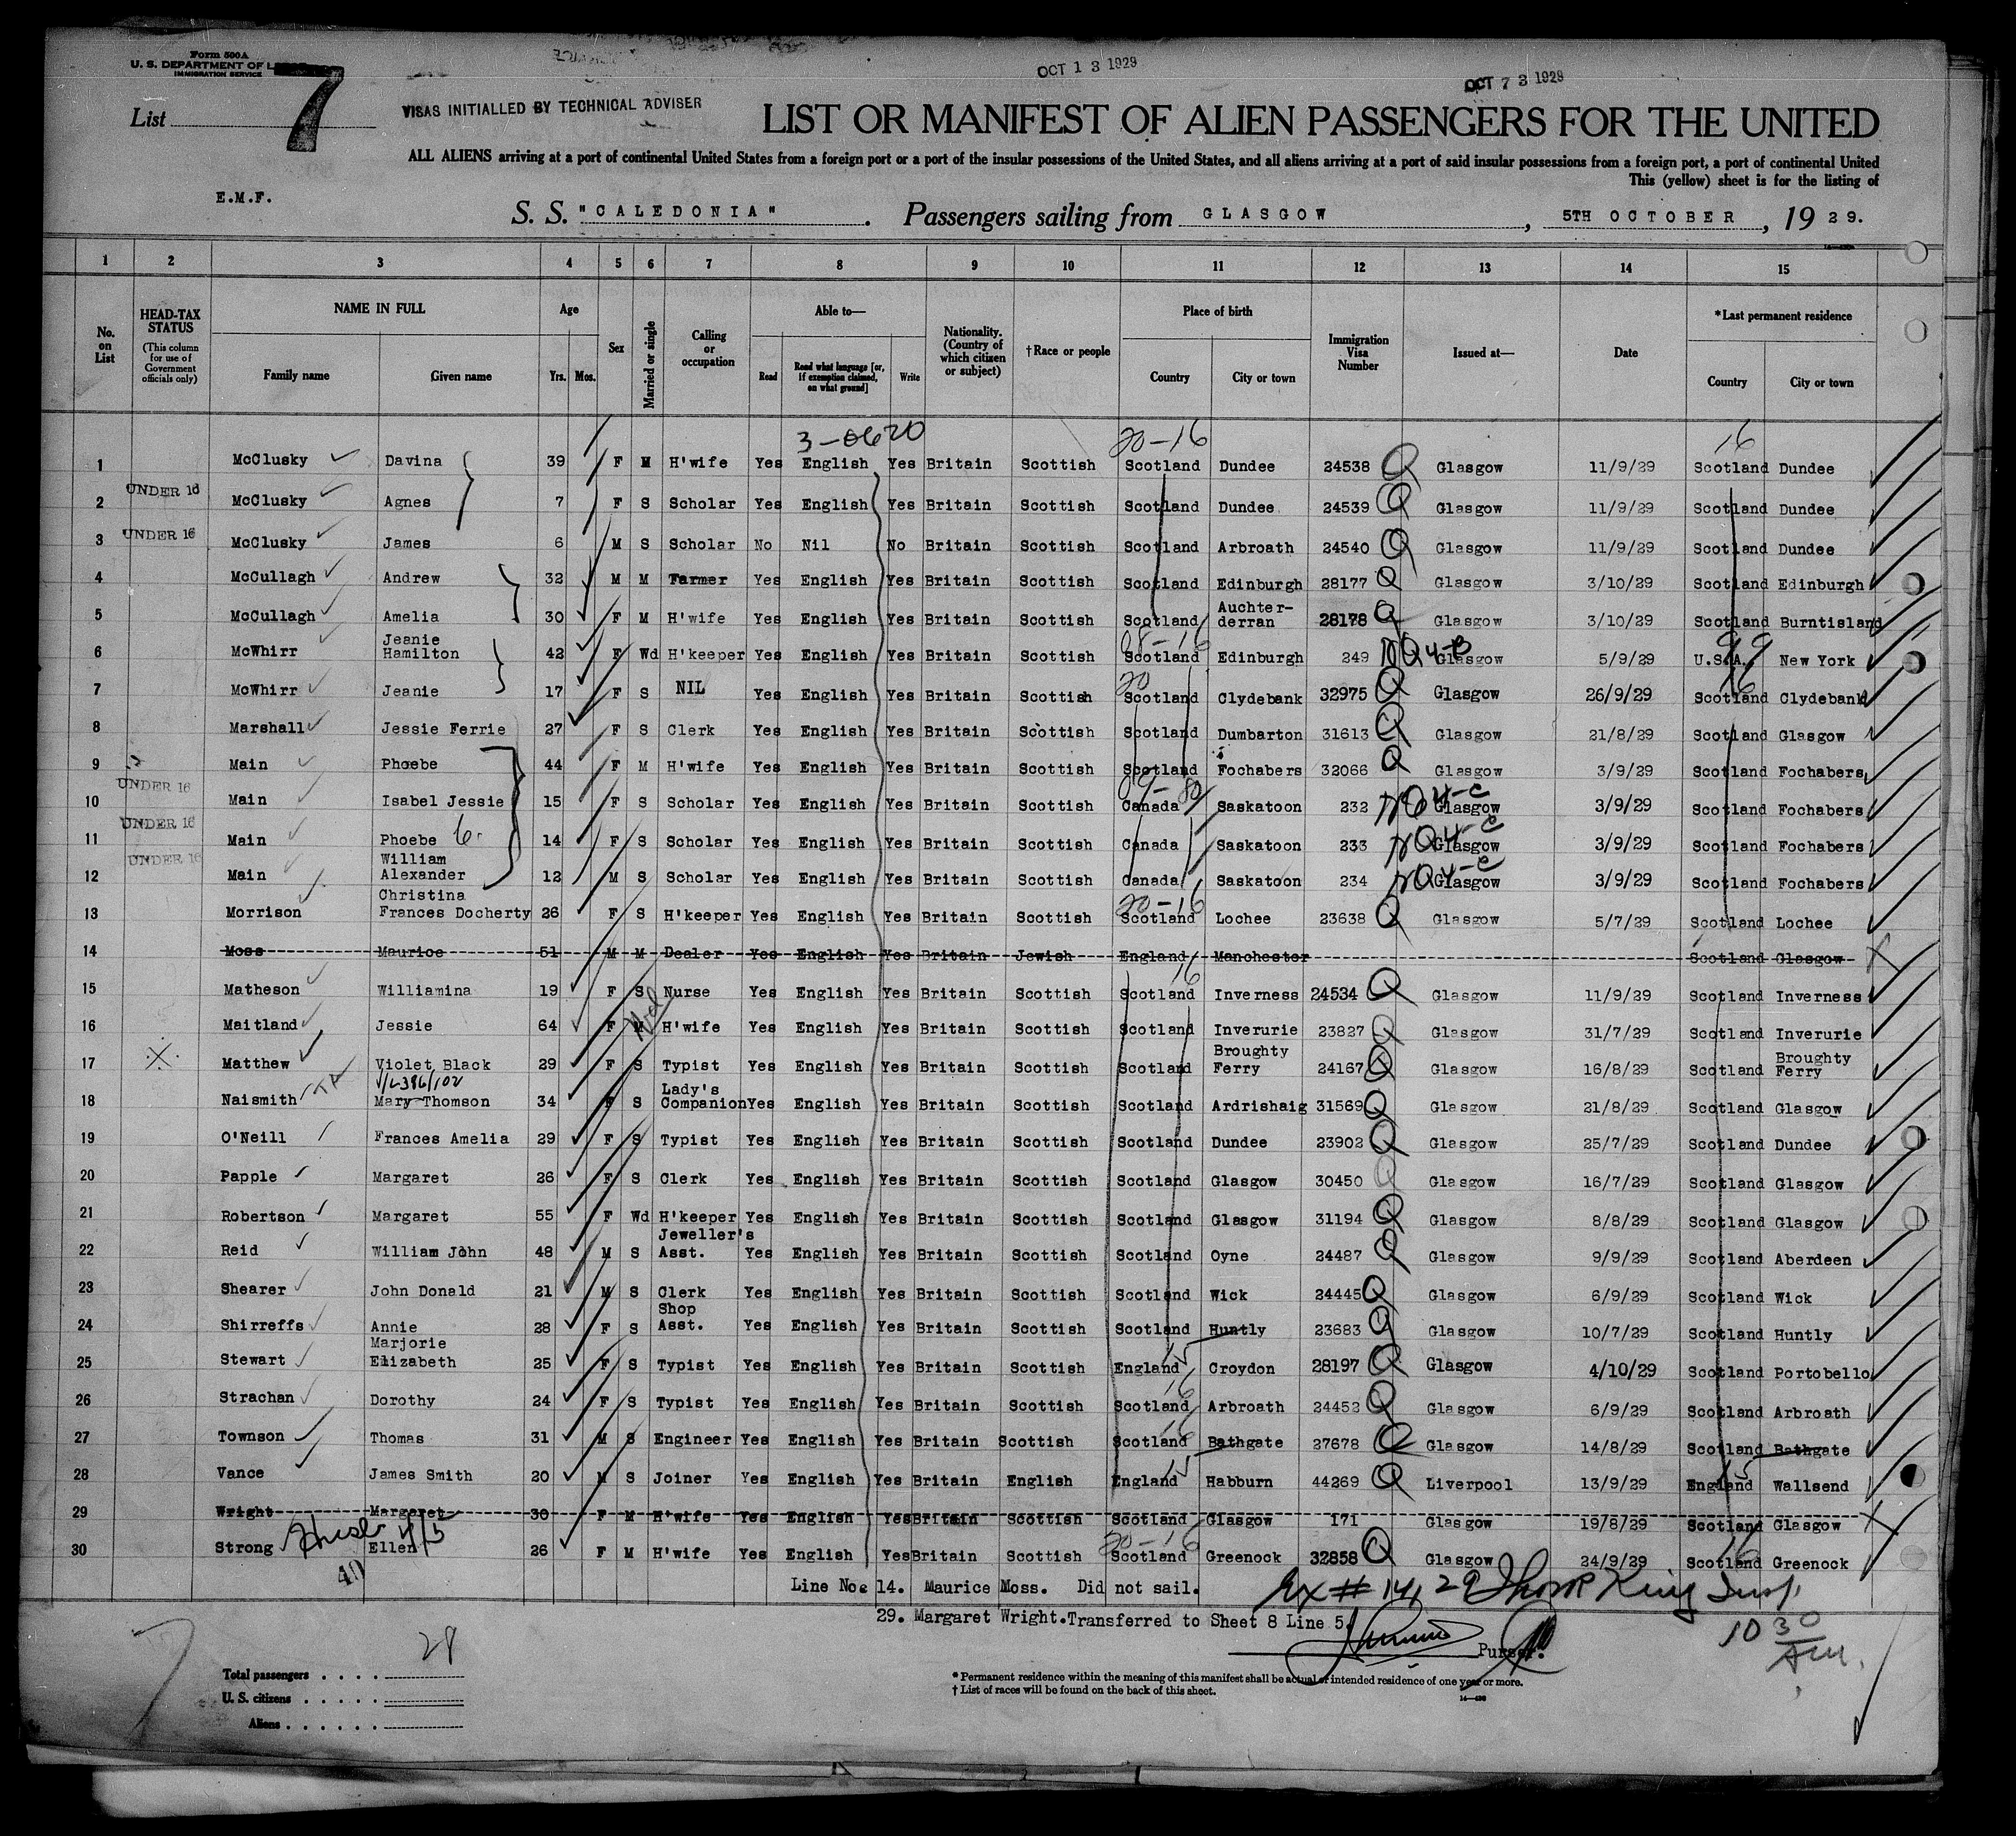 Form 500 A
U. S. DEPARTMENT OF
IMMIGRATION SERVICE
OCT 13 1929
OCT 73 1929
List 7
VISAS INITIALLED BY TECHNICAL ADVISER
LIST OR MANIFEST OF ALIEN PASSENGERS FOR THE UNITED
ALL ALIENS arriving at a port of continental United States from a foreign port or a port of the insular possessions of the United States, and all aliens arriving at a port of said insular possessions from a foreign port, a port of continental United
This (yellow) sheet is for the listing of
E.M.F.
S. S. "CALEDONIA". Passengers sailing from GLASGOW, 5TH OCTOBER, 1929.
1 2 3 4 5 6 7 8 9 10 11 12 13 14 15
No. on List
HEAD-TAX STATUS (This column for use of Government officials only)
NAME IN FULL Family name Given name
Age Yrs. Mos.
Sex
Married or single
Calling or occupation
Able to— Read Read what language [or, if exemption claimed, on what ground] Write
Nationality. (Country of which citizen or subject)
†Race or people
Place of birth Country City or town
Immigration Visa Number
Issued at—
Date
*Last permanent residence Country City or town
3-0620 20-16 16
1 McClusky Davina 39 F M H'wife Yes English Yes Britain Scottish Scotland Dundee 24538 Q Glasgow 11/9/29 Scotland Dundee
2 UNDER 16 McClusky Agnes 7 F S Scholar Yes English Yes Britain Scottish Scotland Dundee 24539 Q Glasgow 11/9/29 Scotland Dundee
3 UNDER 16 McClusky James 6 M S Scholar No Nil No Britain Scottish Scotland Arbroath 24540 Q Glasgow 11/9/29 Scotland Dundee
4 McCullagh Andrew 32 M M Farmer Yes English Yes Britain Scottish Scotland Edinburgh 28177 Q Glasgow 3/10/29 Scotland Edinburgh
5 McCullagh Amelia 30 F M H'wife Yes English Yes Britain Scottish Scotland Auchter-derran 28178 Q Glasgow 3/10/29 Scotland Burntisland
6 McWhirr Jeanie Hamilton 42 F Wd H'keeper Yes English Yes Britain Scottish Scotland Edinburgh 249 NQ 4-B Glasgow 5/9/29 U.S.A. New York
7 McWhirr Jeanie 17 F S NIL Yes English Yes Britain Scottish Scotland Clydebank 32975 Q Glasgow 26/9/29 Scotland Clydebank
8 Marshall Jessie Ferrie 27 F S Clerk Yes English Yes Britain Scottish Scotland Dumbarton 31613 Q Glasgow 21/8/29 Scotland Glasgow
9 Main Phoebe 44 F M H'wife Yes English Yes Britain Scottish Scotland Fochabers 32066 Q Glasgow 3/9/29 Scotland Fochabers
10 UNDER 16 Main Isabel Jessie 15 F S Scholar Yes English Yes Britain Scottish Canada Saskatoon 232 NQ 4-C Glasgow 3/9/29 Scotland Fochabers
11 UNDER 16 Main Phoebe 14 F S Scholar Yes English Yes Britain Scottish Canada Saskatoon 233 NQ 4-C Glasgow 3/9/29 Scotland Fochabers
12 UNDER 16 Main William Alexander 12 M S Scholar Yes English Yes Britain Scottish Canada Saskatoon 234 NQ 4-C Glasgow 3/9/29 Scotland Fochabers
13 Morrison Christina Frances Docherty 26 F S H'keeper Yes English Yes Britain Scottish Scotland Lochee 23638 Q Glasgow 5/7/29 Scotland Lochee
14 Moss Maurice 51 M M Dealer Yes English Yes Britain Jewish England Manchester Scotland Glasgow
15 Matheson Williamina 19 F S Nurse Yes English Yes Britain Scottish Scotland Inverness 24534 Q Glasgow 11/9/29 Scotland Inverness
16 Maitland Jessie 64 F M Wd H'wife Yes English Yes Britain Scottish Scotland Inverurie 23827 Q Glasgow 31/7/29 Scotland Inverurie
17 Matthew Violet Black 29 F S Typist Yes English Yes Britain Scottish Scotland Broughty Ferry 24167 Q Glasgow 16/8/29 Scotland Broughty Ferry
18 Naismith Mary Thomson 34 F S Lady's Companion Yes English Yes Britain Scottish Scotland Ardrishaig 31569 Q Glasgow 21/8/29 Scotland Glasgow
19 O'Neill Frances Amelia 29 F S Typist Yes English Yes Britain Scottish Scotland Dundee 23902 Q Glasgow 25/7/29 Scotland Dundee
20 Papple Margaret 26 F S Clerk Yes English Yes Britain Scottish Scotland Glasgow 30450 Q Glasgow 16/7/29 Scotland Glasgow
21 Robertson Margaret 55 F Wd H'keeper Yes English Yes Britain Scottish Scotland Glasgow 31194 Q Glasgow 8/8/29 Scotland Glasgow
22 Reid William John 48 M S Jeweller's Asst. Yes English Yes Britain Scottish Scotland Oyne 24487 Q Glasgow 9/9/29 Scotland Aberdeen
23 Shearer John Donald 21 M S Clerk Yes English Yes Britain Scottish Scotland Wick 24445 Q Glasgow 6/9/29 Scotland Wick
24 Shirreffs Annie 28 F S Shop Asst. Yes English Yes Britain Scottish Scotland Huntly 23683 Q Glasgow 10/7/29 Scotland Huntly
25 Stewart Marjorie Elizabeth 25 F S Typist Yes English Yes Britain Scottish England Croydon 28197 Q Glasgow 4/10/29 Scotland Portobello
26 Strachan Dorothy 24 F S Typist Yes English Yes Britain Scottish Scotland Arbroath 24452 Q Glasgow 6/9/29 Scotland Arbroath
27 Townson Thomas 31 M S Engineer Yes English Yes Britain Scottish Scotland Bathgate 27678 Q Glasgow 14/8/29 Scotland Bathgate
28 Vance James Smith 20 M S Joiner Yes English Yes Britain English England Habburn 44269 Q Liverpool 13/9/29 England Wallsend
29 Wright Margaret 30 F M H'wife Yes English Yes Britain Scottish Scotland Glasgow 171 Glasgow 19/8/29 Scotland Glasgow
30 Strong Ellen 26 F M H'wife Yes English Yes Britain Scottish Scotland Greenock 32858 Q Glasgow 24/9/29 Scotland Greenock
Line Nos 14. Maurice Moss. Did not sail.
29. Margaret Wright. Transferred to Sheet 8 Line 5.
Ex # 14, 29 King Insp.
10 30 Am.
Purser.
28
Total passengers
U. S. citizens
Aliens
* Permanent residence within the meaning of this manifest shall be actual or intended residence of one year or more.
† List of races will be found on the back of this sheet.